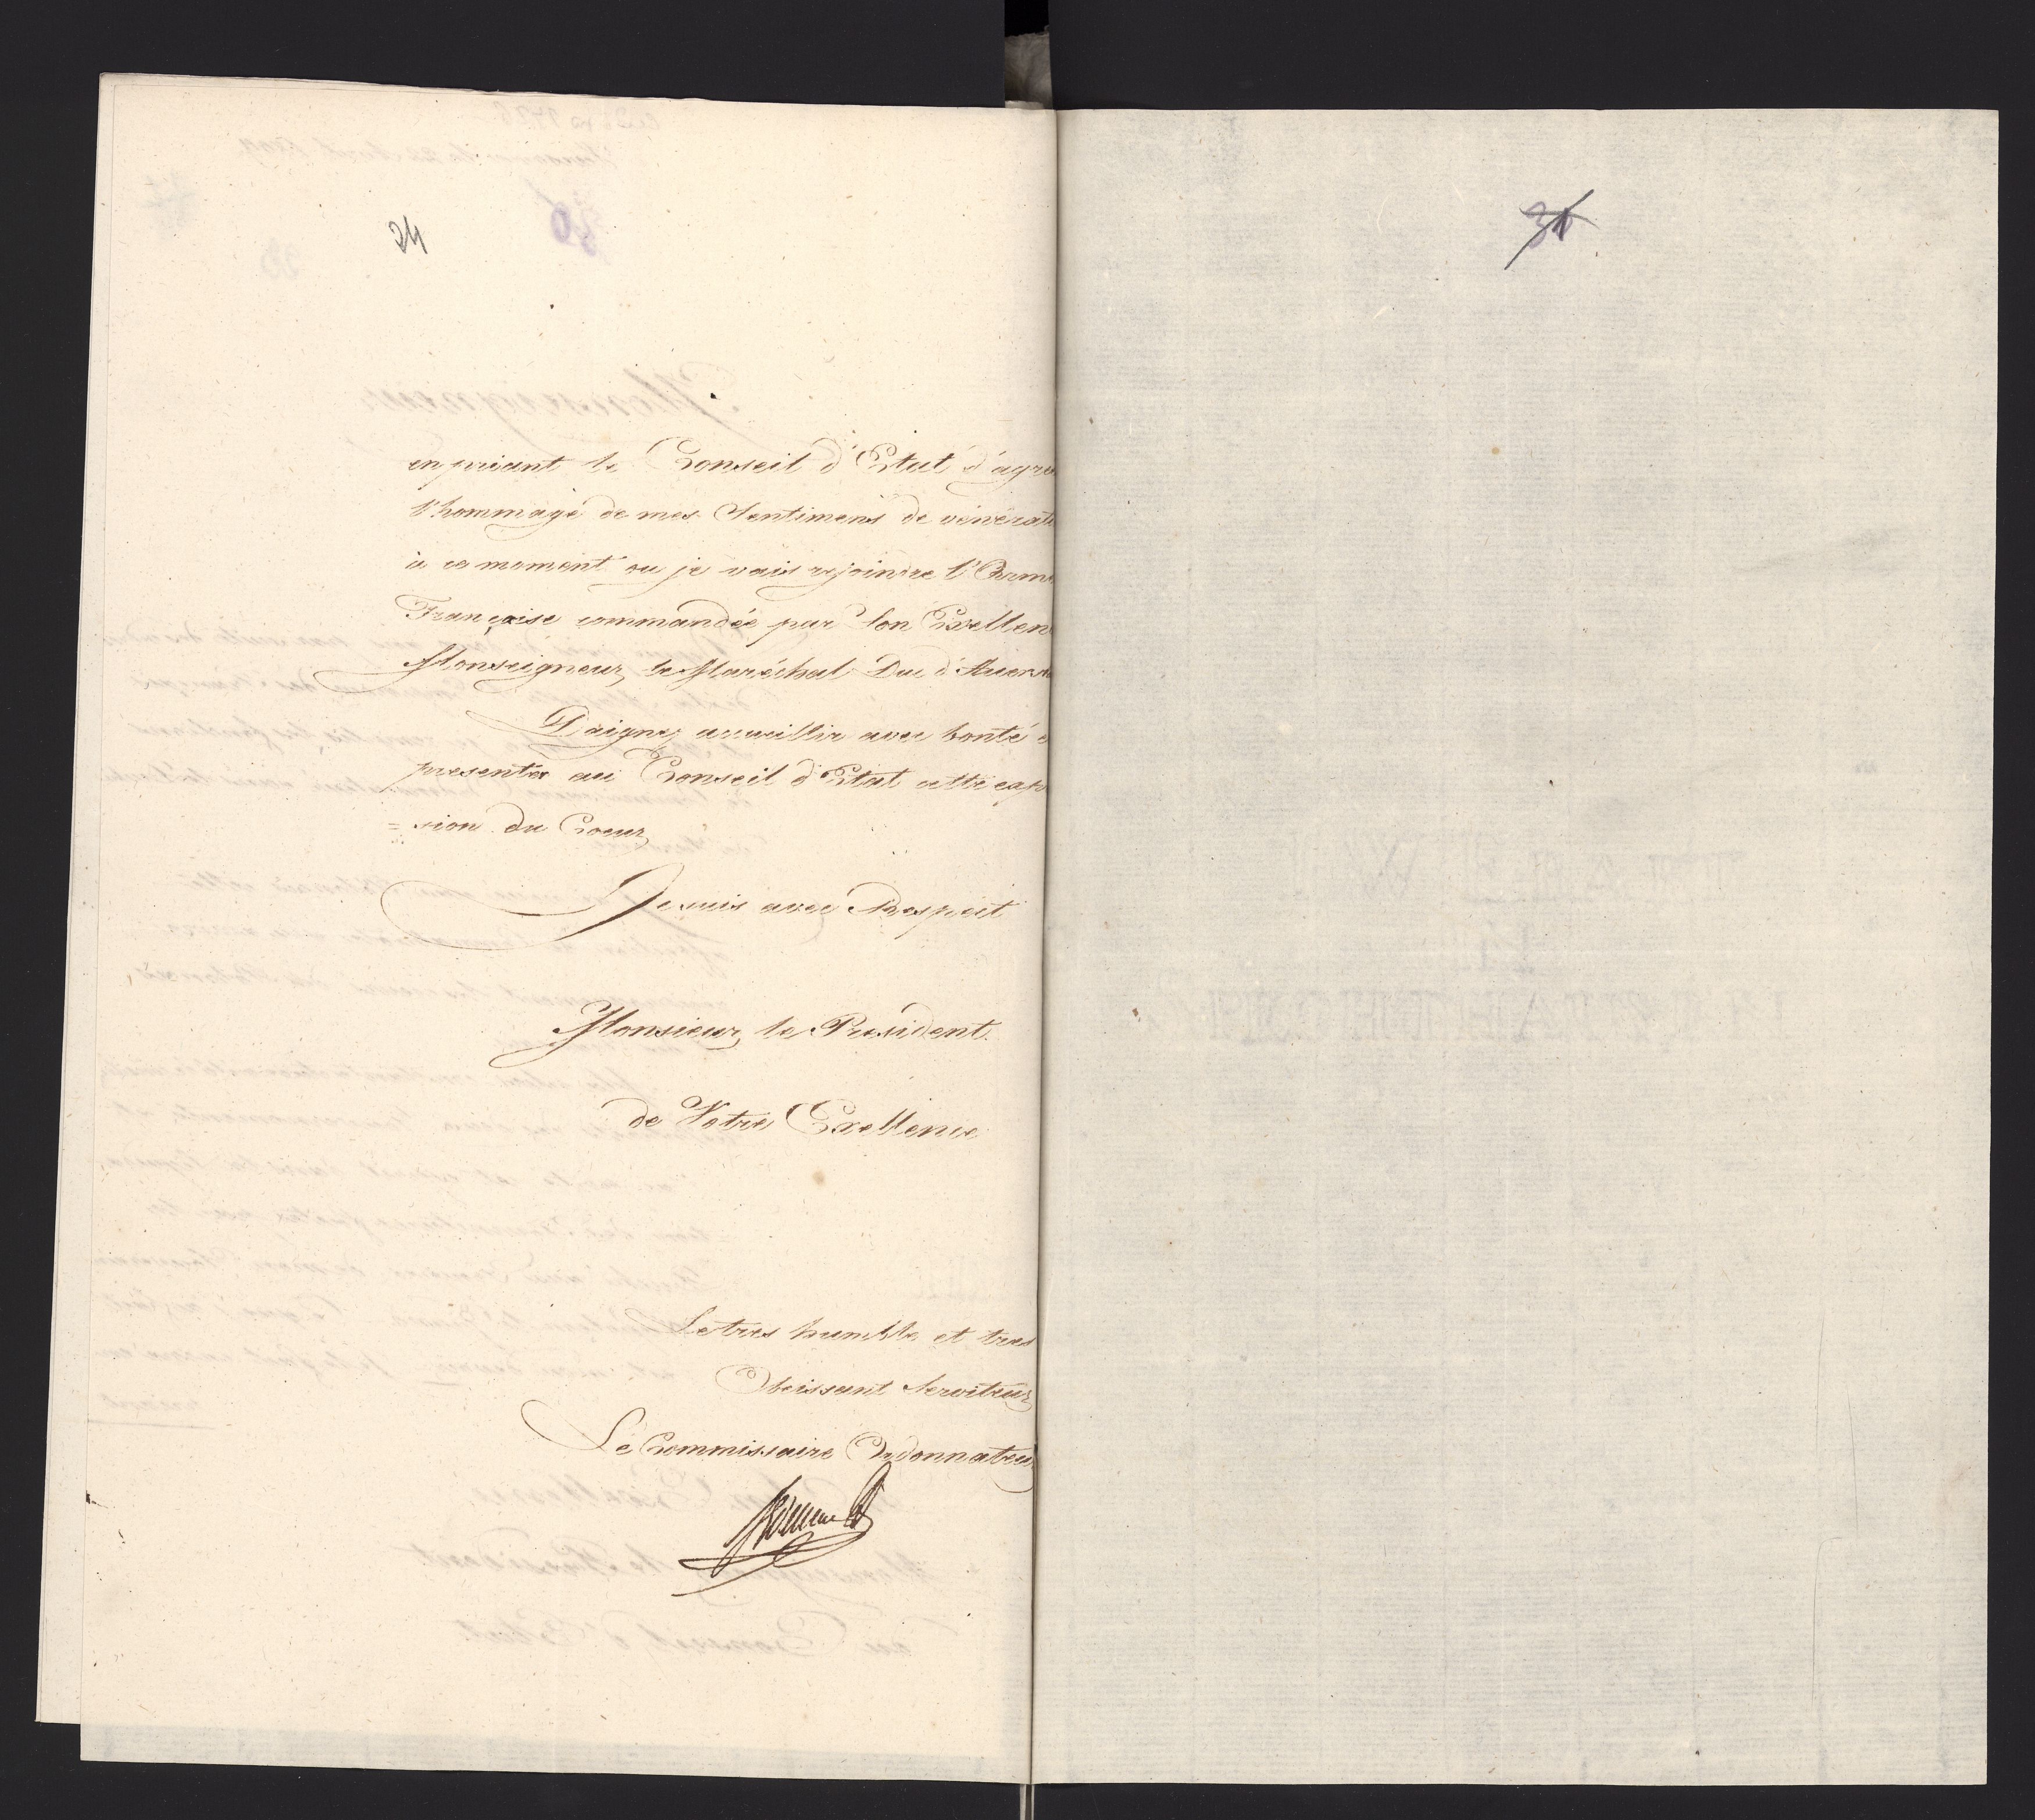 24
en priant le Conseil d'Etat d'agré
l'hommage de mes Sentimens de vénérati
à ce moment ou je vais rejoindre l'Armé
Française commandée par Son Exellen
Monseigneur le Maréchal Duc d'Auerst
Daignez accueillir avec bonté e
presenter au Conseil d'Etat cette exp
= sion du Coeur
Je suis avec Respect
Monsieur le Président
de Votre Exellence
Le tres humble et tres
Obeissant Serviteur
Le Commissaire Ordonnateur